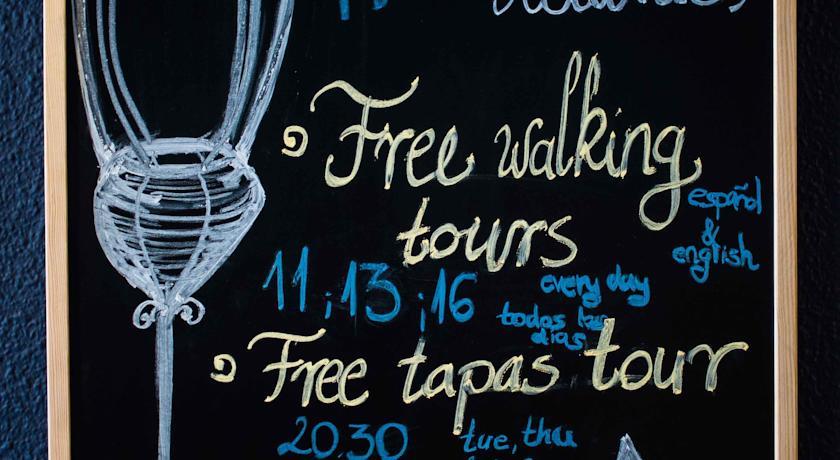 Free walking
tours
español
&
english
11 ; 13 ; 16
every day
todos los
dias
Free tapas tour
20.30
tue, thu